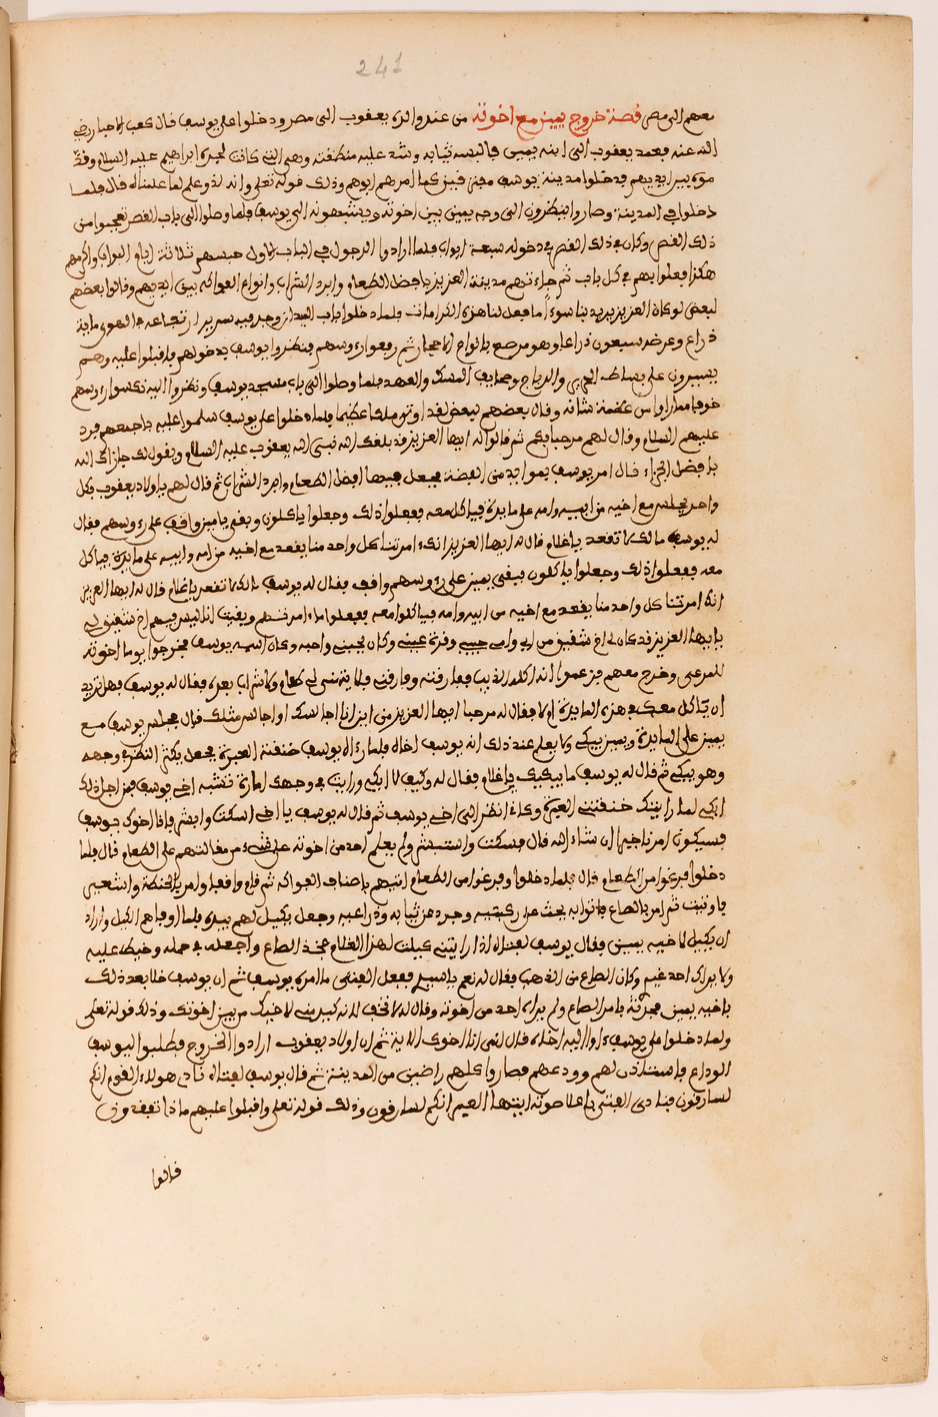 241
معهم الى مصر قصة خروج يمين مع اخوته من عند والده يعقوب الى مصر ودخلوا على يوسف قال كعب الاحبار رضي
الله عنه فعمد يعقوب الى ابنه يمين فالبسه ثيابه وشد عليه منطقته وهي التي كانت لجده ابراهيم عليه السلام وقد
مره بين ايديهم فدخلوا مدينة يوسف كما امرهم ابوهم وذلك قوله تعلى وانه لذو علم لما علمناه قال فلما
دخلوا في المدينة وصاروا ينظرون الى وجه يمين بين اخوته ويشبهونه الى يوسف فلما وصلوا الى باب القصر تعجبوا من
ذلك القصر وكان في ذلك القصر في دخوله سبعة ابواب فلما ارادوا الدخول في الباب الاول حبسهم ثلاثة ايام البواب واكرمهم
هكذا فعلوا بهم في كل باب ثم جاءتهم مدينة العزيز بافضل الطعام وابرد الشراب وانواع الفواكه بين ايديهم وقالوا بعضهم
لبعض لو كان العزيز يريد بنا سوءا ما فعل لنا هذه الكرامات فلما دخلوا باب الميدان وجد فيه سريرا ارتفاعه في الهوى مائة
ذراع وعرضه سبعون ذراعا وهو مرصع بانواع الاحجار ثم رفعوا رءوسهم فنظروا يوسف يدخولهم فاقبلوا عليه وهم
يسيرون على بساط الحرير والديباج المسك والعهد فلما وصلوا الى باب مسجد يوسف ونظروا اليه نكسوا رءوسهم
خوفا مما راوا من عظمة شانه وقال بعضهم لبعض لقد اوتي ملكا عظيما فلما دخلوا على يوسف سلموا عليه باجمعهم فرد
عليهم السلام وقال لهم مرحبا بكم ثم قالوا له ايها العزيز قد بلغك الله نبي الله يعقوب عليه السلام ويقول لك جازاك الله
بافضل الجزاء قال امر يوسف بموايد من الفضة فجعل فيها افضل الطعام وابرد الشراب ثم قال لهم يا اولاد يعقوب كل
واحد يجلس مع اخيه من ابيه وامه على مايدة فياكل معه ففعلوا ذلك وجعلوا ياكلون وبقي يامين واقف على رءوسهم فقال
له يوسف مالك لا تقعد يا غلام قال له ايها العزيز انك امرتنا كل واحد منا يقعد مع اخيه من امه وابيه على مايدة فياكل
معه ففعلوا ذلك وجعلوا ياكلون فبقي يمين على رءوسهم واقف فقال له يوسف مالك لا تقعد يا غلام قال له ايها العزيز
انك امرتنا كل واحد منا يقعد مع اخيه من ابيه وامه فياكلوا معه ففعلوا ما امرتهم وبقيت انا ليس فيهم اخ شقيق لي
يا ايها العزيز قد كان لي اخ شقيق من ابي وامي حبيبي وقرة عيني وكان يحبني واحبه وكان اسمه يوسف فخرجوا يوما اخوته
للمرعى وخرج معهم فزعموا انه اكله الذيب ففارقته وفارقني فلا يتهنى لي طعام ولا شراب بعده فقال له يوسف فهل تريد
ان ياكل معك في هذه المايدة ام لا فقال له مرحبا ايها العزيز من اين انا اجالسك او اجالس مثلك قال فجلس يوسف مع
يمين على المايدة ويمين يبكي ولا يعلم عند ذلك انه يوسف اخاه فلما رءاه يوسف خنقته العبرة فجعل يكثر النظر في وجهه
وهو يبكي ثم قال له يوسف ما يبكيك يا غلام فقال له وكيف لا ابكي ورايت في وجهك امارة تشبه اخي يوسف فمن اجل ذلك
ابكي لما رايتك خنقتني العبرة وكاني انظر الى اخي يوسف ثم قال له يوسف يا اخي اسكت وابشر فانا اخوك يوسف
فسيكون امرنا خيرا ان شاء الله قال فسكت واستبشر ولم يعلم احد من اخوته على شيء من مقالتهم على الطعام قال فلما
دخلوا فرغوا من الطعام قال فلما دخلوا وفرغوا من الطعام اتيهم باصناف الفواكه ثم قام واقعدوا وامر بالحنطة والشعير
فاوتيت ثم امر بالصاع فاتوا به بحث عن ركبتيه وجرد عن ثيابه وذراعيه وجعل يكيل لهم بيده فلما اوفاهم الكيل واراد
ان يكيل لاخيه يمين فقال يوسف لفتاه اذا رايتني كيلت لهذا الغلام فخذ الصاع واجعله في حمله وخيط عليه
ولا يراك احد غيره وكان الصاع من الذهب فقال له نعم يا سيدي ففعل الفتى ما امره يوسف ثم ان يوسف خلا بعد ذلك
باخيه يمين فحدثه بامر الصاع ولم يراه احد من اخوته وقال له لا تخف لانه كيد مني لاخيك من بين اخوتك وذلك قوله تعلى
ولما دخلوا على يوسف ءاوا اليه اخاه قال اني انا اخوك الاية ثم ان اولاد يعقوب ارادوا الخروج فطلبوا ليوسف
الوداع فاستاذن لهم وودعهم فصاروا كلهم راضين من المدينة ثم قال يوسف لفتاه نادي هولاء القوم انكم
لسارقون فنادى الفتى باعلا صوته ايتها العير انكم لسارقون وذلك قوله تعلى واقبلوا عليهم ماذا تفقدون
قالوا